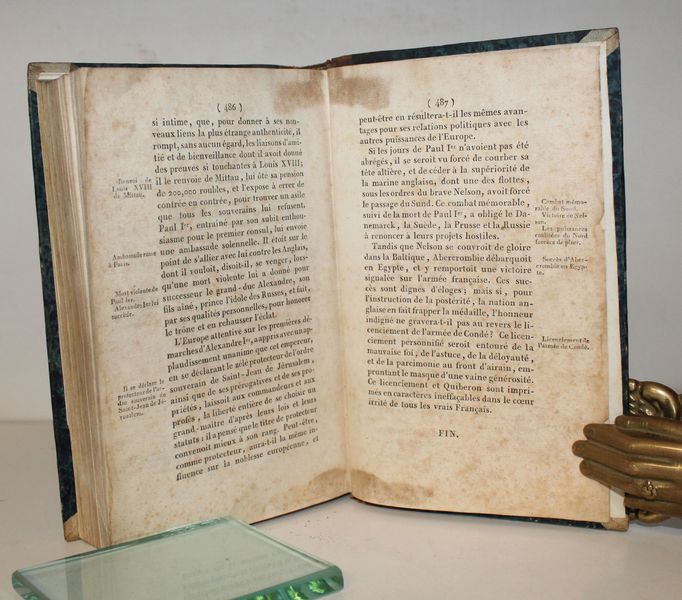 ( 486 )
si intime, que, pour donner à ses nou-
veaux liens la plus étrange authenticité, il
rompt, sans aucun égard, les liaisons d'ami-
tié et de bienveillance dont il avoit donné
des preuvés si touchantes à Louis XVIII;
Renvoi de
Louis XVIII
de Mittau.
il le renvoie de Mittau, lui ôte sa pension
de 200,000 roubles, et l'expose à errer de
contrée en contrée, pour trouver un asile
que tous les souverains lui refusent.
Paul Ier, entraîné par son subit enthou-
siasme pour le premier consul, lui envoie
Ambassade russe
à Paris.
une ambassade solennelle. Il étoit sur le
point de s'allier avec lui contre les Anglais,
dont il vouloit, disoit-il, se venger, lors-
Mort violente de
Paul Ier.
Alexandre Ier lui
succède.
qu'une mort violente lui a donné pour
successeur le grand-duc Alexandre, son
fils aîné, prince l'idole des Russes, et fait,
par ses qualités personnelles, pour honorer
le trône et en rehausser l'éclat.
L'Europe attentive sur les premières dé-
marches d'Alexandre Ier, a appris avec un ap-
plaudissement unanime que cet empereur,
Il se déclare le
protecteur de l'or-
dre souverain de
Saint-Jean de Jé-
rusalem.
en se déclarant le zélé protecteur de l'ordre
souverain de Saint-Jean de Jérusalem,
ainsi que de ses prérogatives et de ses pro-
priétés, laissoit aux commandeurs et aux
profès, la liberté entière de se choisir un
grand-maître d'après leurs lois et leurs
statuts: il a pensé que le titre de protecteur
convenoit mieux à son rang. Peut-être,
comme protecteur, aura-t-il la même in-
fluence sur la noblesse européenne, et
( 487 )
peut-être en résultera-t-il les mêmes avan-
tages pour ses relations politiques avec les
autres puissances de l'Europe.
Si les jours de Paul Ier n'avoient pas été
abrégés, il se seroit vu forcé de courber sa
tête altière, et de céder à la supériorité de
la marine anglaise, dont une des flottes,
sous les ordres du brave Nelson, avoit forcé
Combat mémo-
rable du Sund.
Victoire de Nel-
son.
Les puissances
coalisées du Nord
forcées de plier.
le passage du Sund. Ce combat mémorable,
suivi de la mort de Paul Ier, a obligé le Da-
nemarck, la Suède, la Prusse et la Russie
à renoncer à leurs projets hostiles.
Tandis que Nelson se couvroit de gloire
Succès d'Aber-
crombie en Egyp-
te.
dans la Baltique, Abercrombie débarquoit
en Egypte, et y remportoit une victoire
signalée sur l'armée française. Ces suc-
cès sont dignés d'éloges; mais si, pour
l'instruction de la postérité, la nation an-
glaise en fait frapper la médaille, l'honneur
indigné ne gravera-t-il pas au revers le li-
Licenciement de
l'armée de Condé.
cenciement de l'armée de Condé? Ce licen-
ciement personnifié seroit entouré de la
mauvaise foi, de l'astuce, de la déloyauté,
et de la parcimonie au front d'airain, em-
pruntant le masque d'une vaine générosité.
Ce licenciement et Quiberon sont impri-
més en caractères ineffaçables dans le cœur
irrité de tous les vrais Français.
FIN.